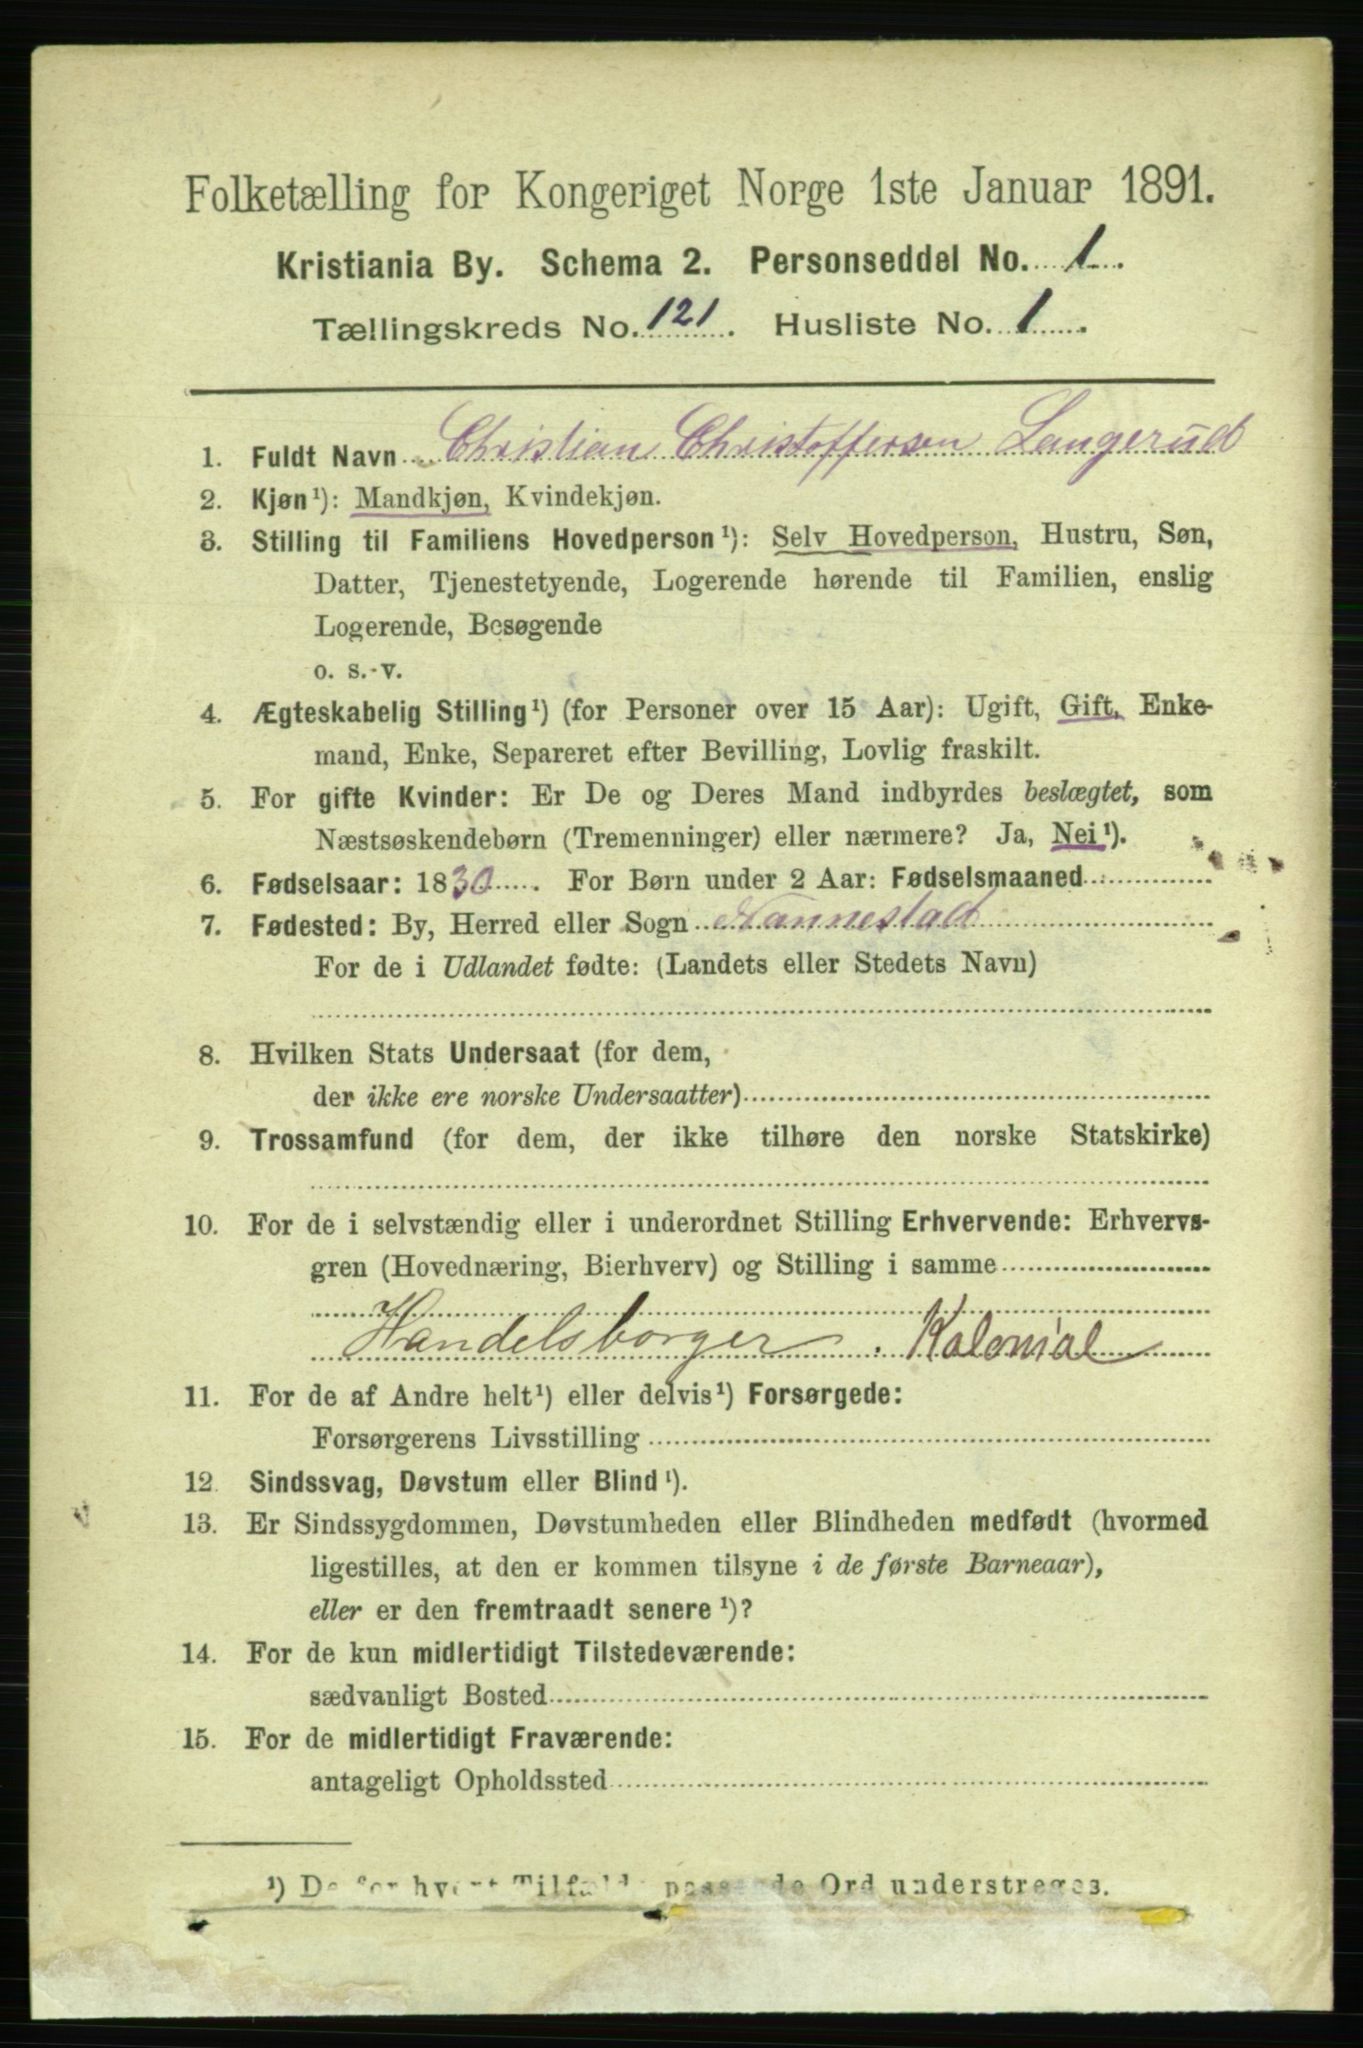 Folketælling for Kongeriget Norge 1ste Januar 1891.
Kristiania By. Schema 2. Personseddel No. 1.
Tællingskreds No. 121. Husliste No. 1.
1. Fuldt Navn Christian Christoffersen Langerud
2. Kjøn¹): Mandkjøn, Kvindekjøn.
3. Stilling til Familiens Hovedperson¹): Selv Hovedperson, Hustru, Søn,
Datter, Tjenestetyende, Logerende hørende til Familien, enslig
Logerende, Besøgende
o. s. v.
4. Ægteskabelig Stilling¹) (for Personer over 15 Aar): Ugift, Gift, Enke-
mand, Enke, Separeret efter Bevilling, Lovlig fraskilt.
5. For gifte Kvinder: Er De og Deres Mand indbyrdes beslægtet, som
Næstsøskendebørn (Tremenninger) eller nærmere? Ja, Nei¹).
6. Fødselsaar: 1830. For Børn under 2 Aar: Fødselsmaaned
7. Fødested: By, Herred eller Sogn Nannestad
For de i Udlandet fødte: (Landets eller Stedets Navn)
8. Hvilken Stats Undersaat (for dem,
der ikke ere norske Undersaatter)
9. Trossamfund (for dem, der ikke tilhøre den norske Statskirke)
10. For de i selvstændig eller i underordnet Stilling Erhvervende: Erhvervs-
gren (Hovednæring, Bierhverv) og Stilling i samme
Handelsborger. Kolonial
11. For de af Andre helt¹) eller delvis¹) Forsørgede:
Forsørgerens Livsstilling
12. Sindssvag, Døvstum eller Blind¹).
13. Er Sindssygdommen, Døvstumheden eller Blindheden medfødt (hvormed
ligestilles, at den er kommen tilsyne i de første Barneaar),
eller er den fremtraadt senere¹)?
14. For de kun midlertidigt Tilstedeværende:
sædvanligt Bosted
15. For de midlertidigt Fraværende:
antageligt Opholdssted
¹) De for hvert Tilfælde passende Ord understreges.